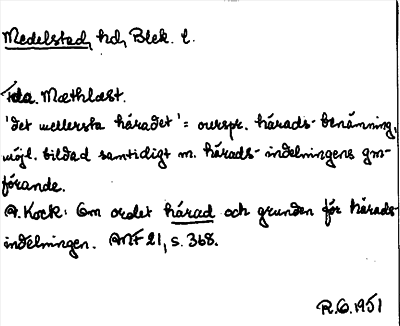 Medelstad, hd, Blek. l.
Fda. Mæthlæst.
'det mellersta häradet' = ourspr. härads-benämning,
möjl. bildad samtidigt m. härads-indelningens gm-
förande.
A. Kock: Om ordet härad och grunden för härads-
indelningen. ANF 21, s. 368.
R.O. 1951